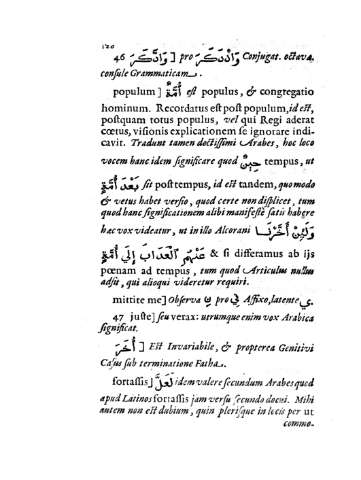 120
46 وَاَدَّكَرَ ] pro وَاْذْدَكَرَ Conjugat. octava,
consule Grammaticam.
populum ] أُمَّةٌ est populus, & congregatio
hominum. Recordatus est post populum, id est,
postquam totus populus, vel qui Regi aderat
cœtus, visionis explicationem se ignorare indi-
cavit. Tradunt tamen doctissimi Arabes, hoc loco
vocem hanc idem significare quod حِينٌ tempus, ut
بَعْدَ أُمَّةٍ sit post tempus, id est tandem, quomodo
& vetus habet versio, quod certe non displicet, tum
quod hanc significationem alibi manifestè satis habere
hæc vox videatur, ut in illo Alcorani وَلَئِنْ أَخَّرْنَا
عَنْهُمُ ٱلْعَذَابَ إِلَي أُمَّةٍ & si differamus ab ijs
pœnam ad tempus, tum quod Articulus nullus
adsit, qui alioqui videretur requiri.
mittite me ] Observa ن pro ني Affixo, latente ي.
47 juste ] seu verax: utrumque enim vox Arabica
significat.
أُخَرَ ] Est Invariabile, & propterea Genitivi
Casus sub terminatione Fatha.
fortassis ] لَعَلَّ idem valere secundum Arabes quod
apud Latinos fortassis jam versu secundo docui. Mihi
autem non est dubium, quin plerisque in locis per ut
commo-